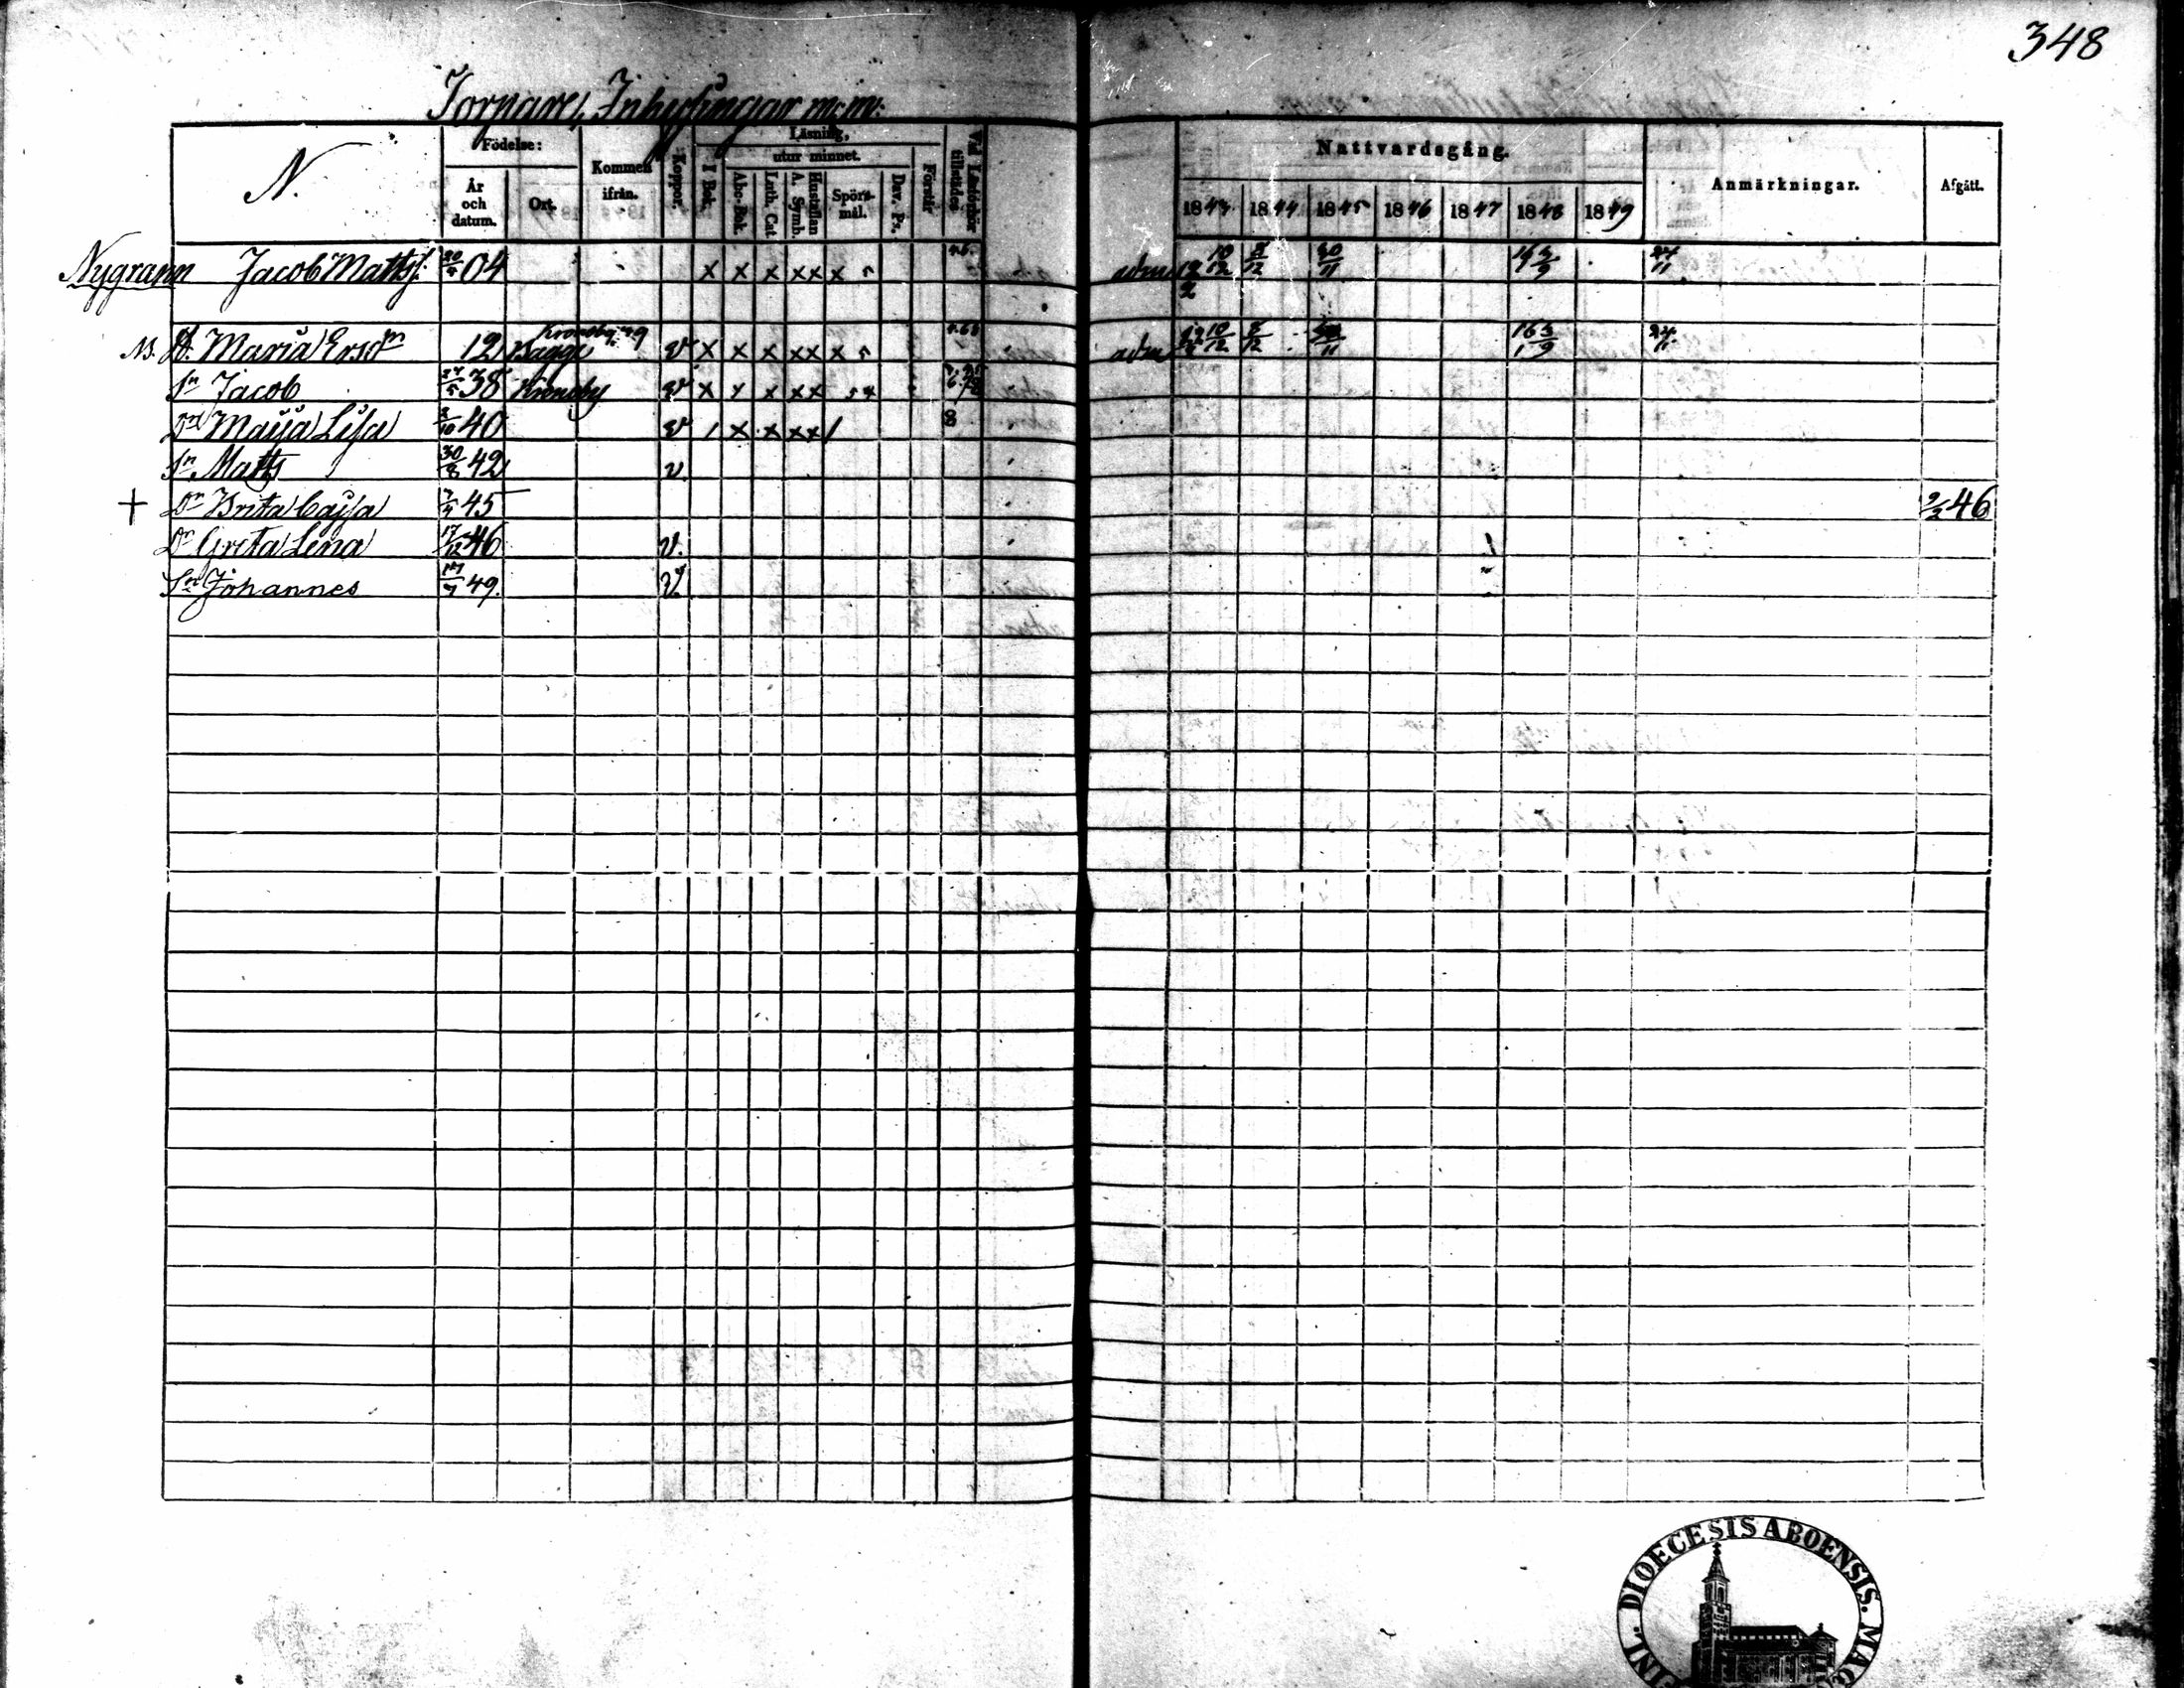 348
Torpare, Inhysingar m.m.
N.
Födelse:
År och datum.
Ort.
Kommen ifrån.
Koppor.
Läsning,
utur minnet.
I Bok.
Abc-Bok.
Luth. Cat.
Hustaflan A. Symb.
Spörsmål.
Dav. Ps.
Förstår
Vid Läsförhör tillstädes
Nattvardsgång.
1843. 1844 1845 1846 1847 1848 1849
Anmärkningar.
Afgått.
Nygrann Jacob Matts. 04 x x x x x x adm 10/12 8/12 30/11 24/11
H. Maria Ersdr 12 Kronoby Bagge v x x x x x x adm 10/12 8/12 24/11
Sn Jacob 38 Kronoby v x x x x x
Dr Maija Lisa 3/10 40 v / x x x x / 8
Sn Matts 30/8 42 v
+ Dr Brita Cajsa 45 9/2 46
Dr Greta Lena 17/12 46 v.
Sn Johannes 49. v.
FINL. DIOECESIS ABOENSIS. MAG